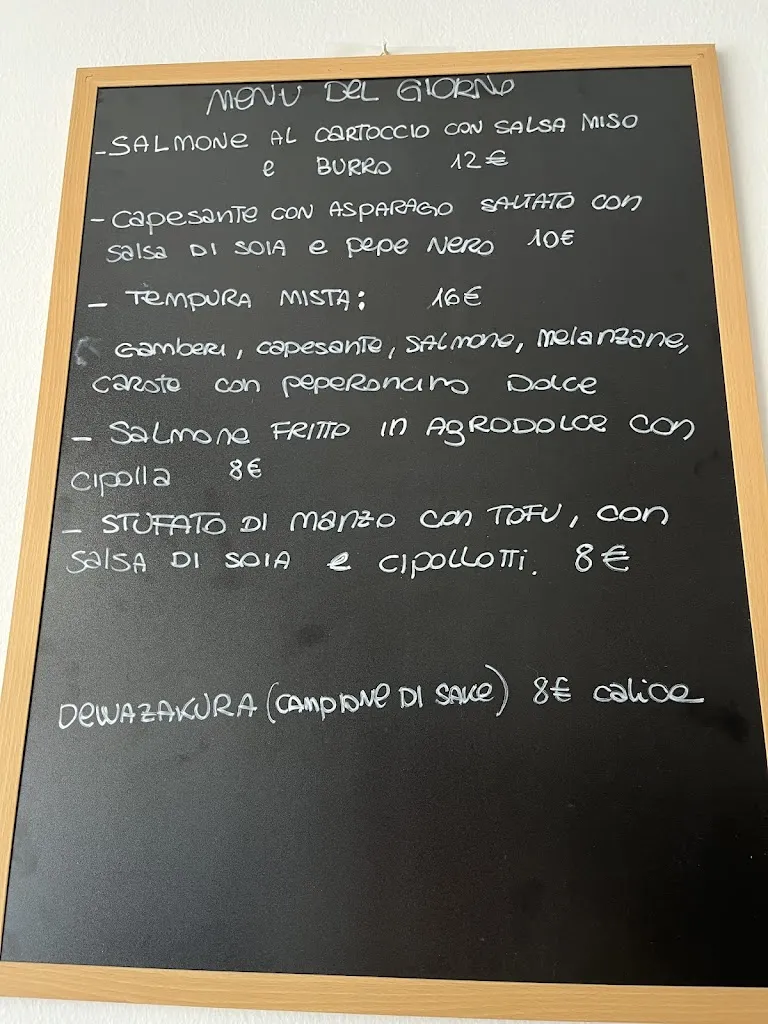 MENU DEL GIORNO
- SALMONE AL CARTOCCIO CON SALSA MISO
e BURRO 12€
- Capesante CON ASPARAGO SALTATO con
salsa DI SOIA e pepe NERO 10€
- TEMPURA MISTA: 16€
Gamberi, capesante, SALMONE, melanzane,
carote con peperoncino DOLCE
- Salmone FRITTO in AGRODOLCE con
cipolla 8€
- STUFATO DI manzo con TOFU, con
salsa DI SOIA e CIPOLLOTTI. 8€
DEWAZAKURA (CAMPIONE DI SAKE) 8€ calice